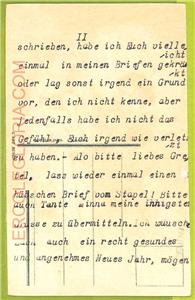 II
schrieben, habe ich Euch vielle
icht
einmal in meinen Briefen gekrä
kt
oder lag sonst irgend ein Grund
vor, den ich nicht kenne, aber
jedenfalls habe ich nicht das
Gefühl, Euch irgend wie verlet
zt
zu haben.- Alo bitte liebes Gre
tel, lass wieder einmal einen
hübschen Brief vom Stapel! Bitte
auch Tante Minna meine innigsten
Grüsse zu übermitteln. Ich wünsche
Euch auch ein recht gesundes
und angenehmes Neues Jahr, mögen